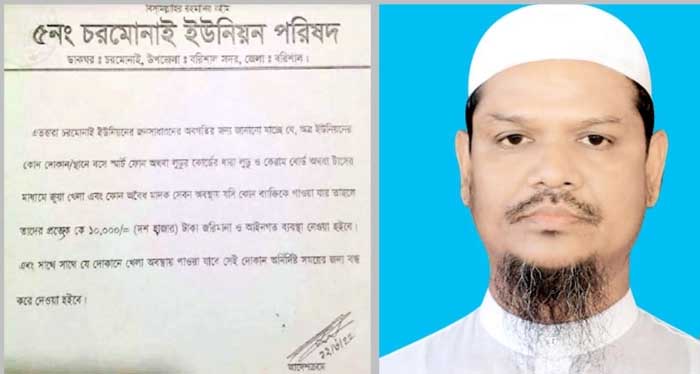 বিসমিল্লাহির রহমানির রহীম
৫নং চরমোনাই ইউনিয়ন পরিষদ
ডাকঘর : চরমোনাই, উপজেলা : বরিশাল সদর, জেলা : বরিশাল।
এতদ্বারা চরমোনাই ইউনিয়নের জনসাধারনের অবগতির জন্য জানানো যাচ্ছে যে, অত্র ইউনিয়নের
কোন দোকান/স্থানে বসে স্মার্ট ফোন অথবা লুডুর কোর্ডের ধারা লুডু ও কেরাম বোর্ড অথবা টাসের
মাধ্যমে জুয়া খেলা এবং কোন অবৈধ মাদক সেবন অবস্থায় যদি কোন ব্যাক্তিকে পাওয়া যায় তাহলে
তাদের প্রত্যেক কে ১০,০০০/= (দশ হাজার) টাকা জরিমানা ও আইনগত ব্যবস্থা নেওয়া হইবে।
এবং সাথে সাথে যে দোকানে খেলা অবস্থায় পাওয়া যাবে সেই দোকান অনির্দিষ্ট সময়ের জন্য বন্ধ
করে দেওয়া হইবে।
আদেশক্রমে